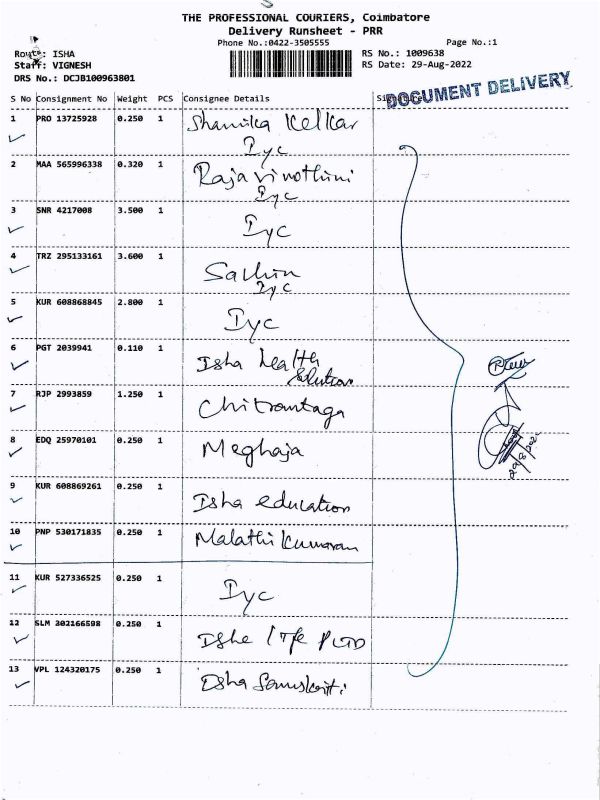 THE PROFESSIONAL COURIERS, Coimbatore
Delivery Runsheet - PRR
Phone No.:0422-3505555
Page No.:1
Route: ISHA
RS No.: 1009638
Staff: VIGNESH
RS Date: 29-Aug-2022
DRS No.: DCJB100963801
DOCUMENT DELIVERY
S No Consignment No Weight PCS Consignee Details
1 PRO 13725928 0.250 1 Shamika Kelkar
Iyc
2 MAA 565996338 0.320 1 Rajavinothini
Iyc
3 SNR 4217008 3.500 1 Iyc
4 TRZ 295133161 3.600 1 Sachin
Iyc
5 KUR 608868845 2.800 1 Iyc
6 PGT 2039941 0.110 1 Isha health
Solution
7 RJP 2993859 1.250 1 Chitrantaga
8 EDQ 25970101 0.250 1 Meghaja
9 KUR 608869261 0.250 1 Isha education
10 PNP 530171835 0.250 1 Malathi Kumaran
11 KUR 527336525 0.250 1 Iyc
12 SLM 202166598 0.250 1 Isha life PLTD
13 VPL 124320175 0.250 1 Isha Samskriti